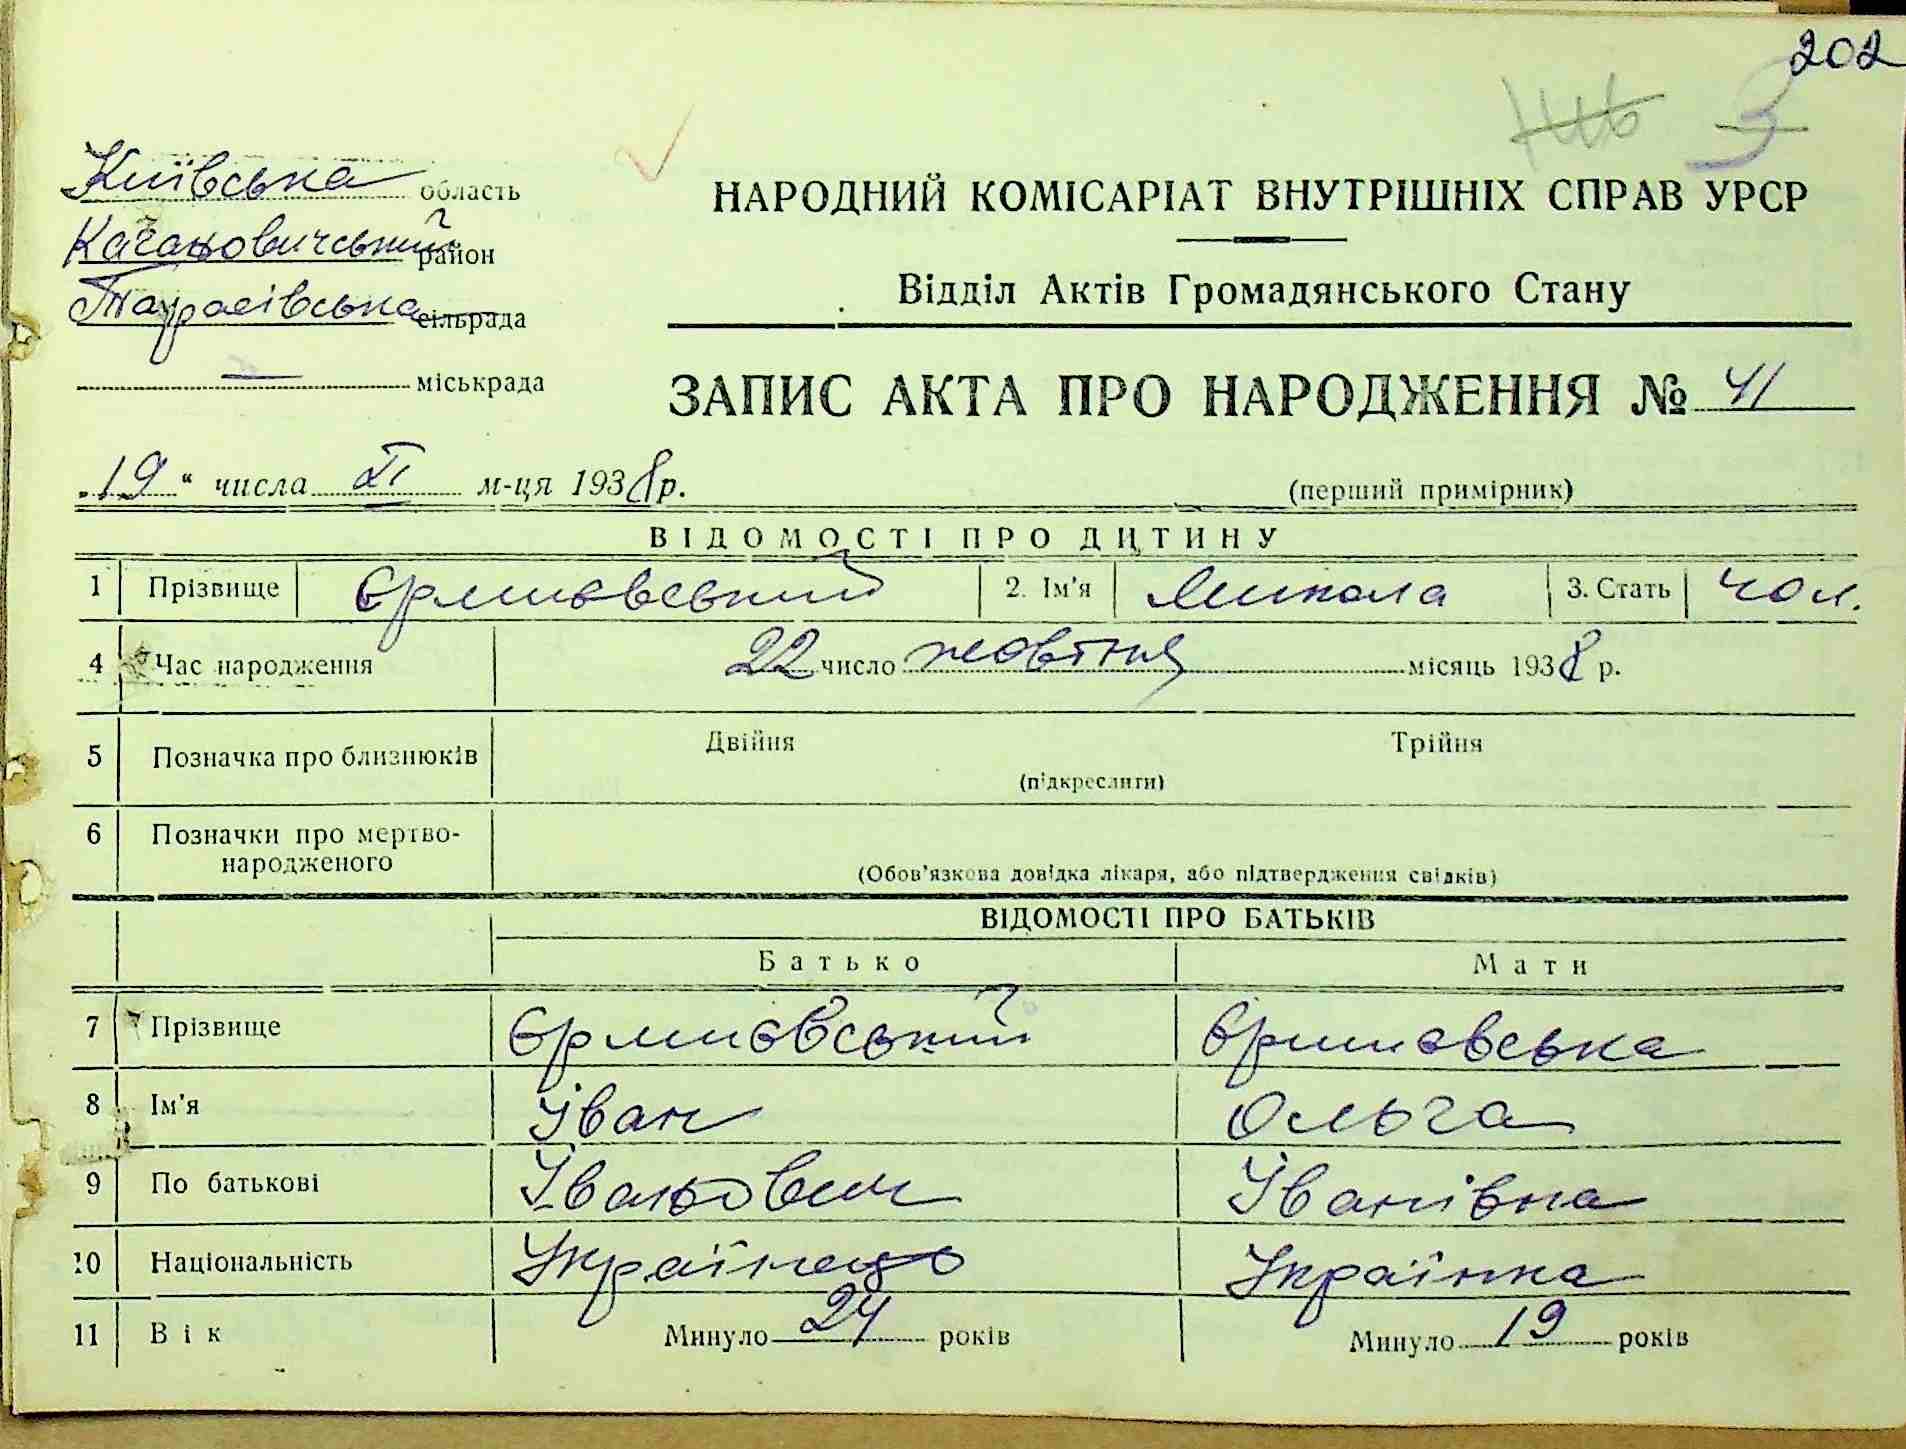 202
3
Київська область
Кагановичський район
Тарасівська сільрада
— міськрада
НАРОДНИЙ КОМІСАРІАТ ВНУТРІШНІХ СПРАВ УРСР
Відділ Актів Громадянського Стану
ЗАПИС АКТА ПРО НАРОДЖЕННЯ № 41
„19“ числа XI м-ця 1938 р.
(перший примірник)
ВІДОМОСТІ ПРО ДИТИНУ
1 Прізвище Єрмиєвський 2. Ім'я Микола 3. Стать чол.
4 Час народження 22 число жовтня місяць 1938 р.
5 Позначка про близнюків Двійня Трійня
(підкреслити)
6 Позначки про мертво-
народженого
(Обов'язкова довідка лікаря, або підтвердження свідків)
ВІДОМОСТІ ПРО БАТЬКІВ
Батько Мати
7 Прізвище Єрмиєвський Єрмиєвська
8 Ім'я Іван Ольга
9 По батькові Іванович Іванівна
10 Національність Українець Українка
11 Вік Минуло 24 років Минуло 19 років